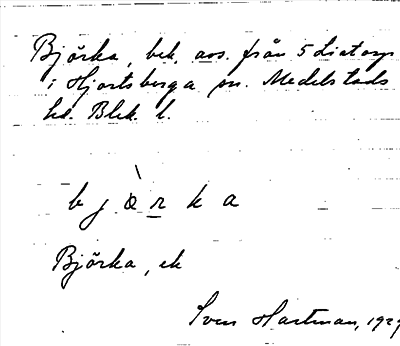 Björka, bek. avs. från 5 Listorp
i Hjortsberga sn. Medelstads
hd. Blek. l.
b j ö̀ r k a
Björka, ek
Sven Hartman, 192